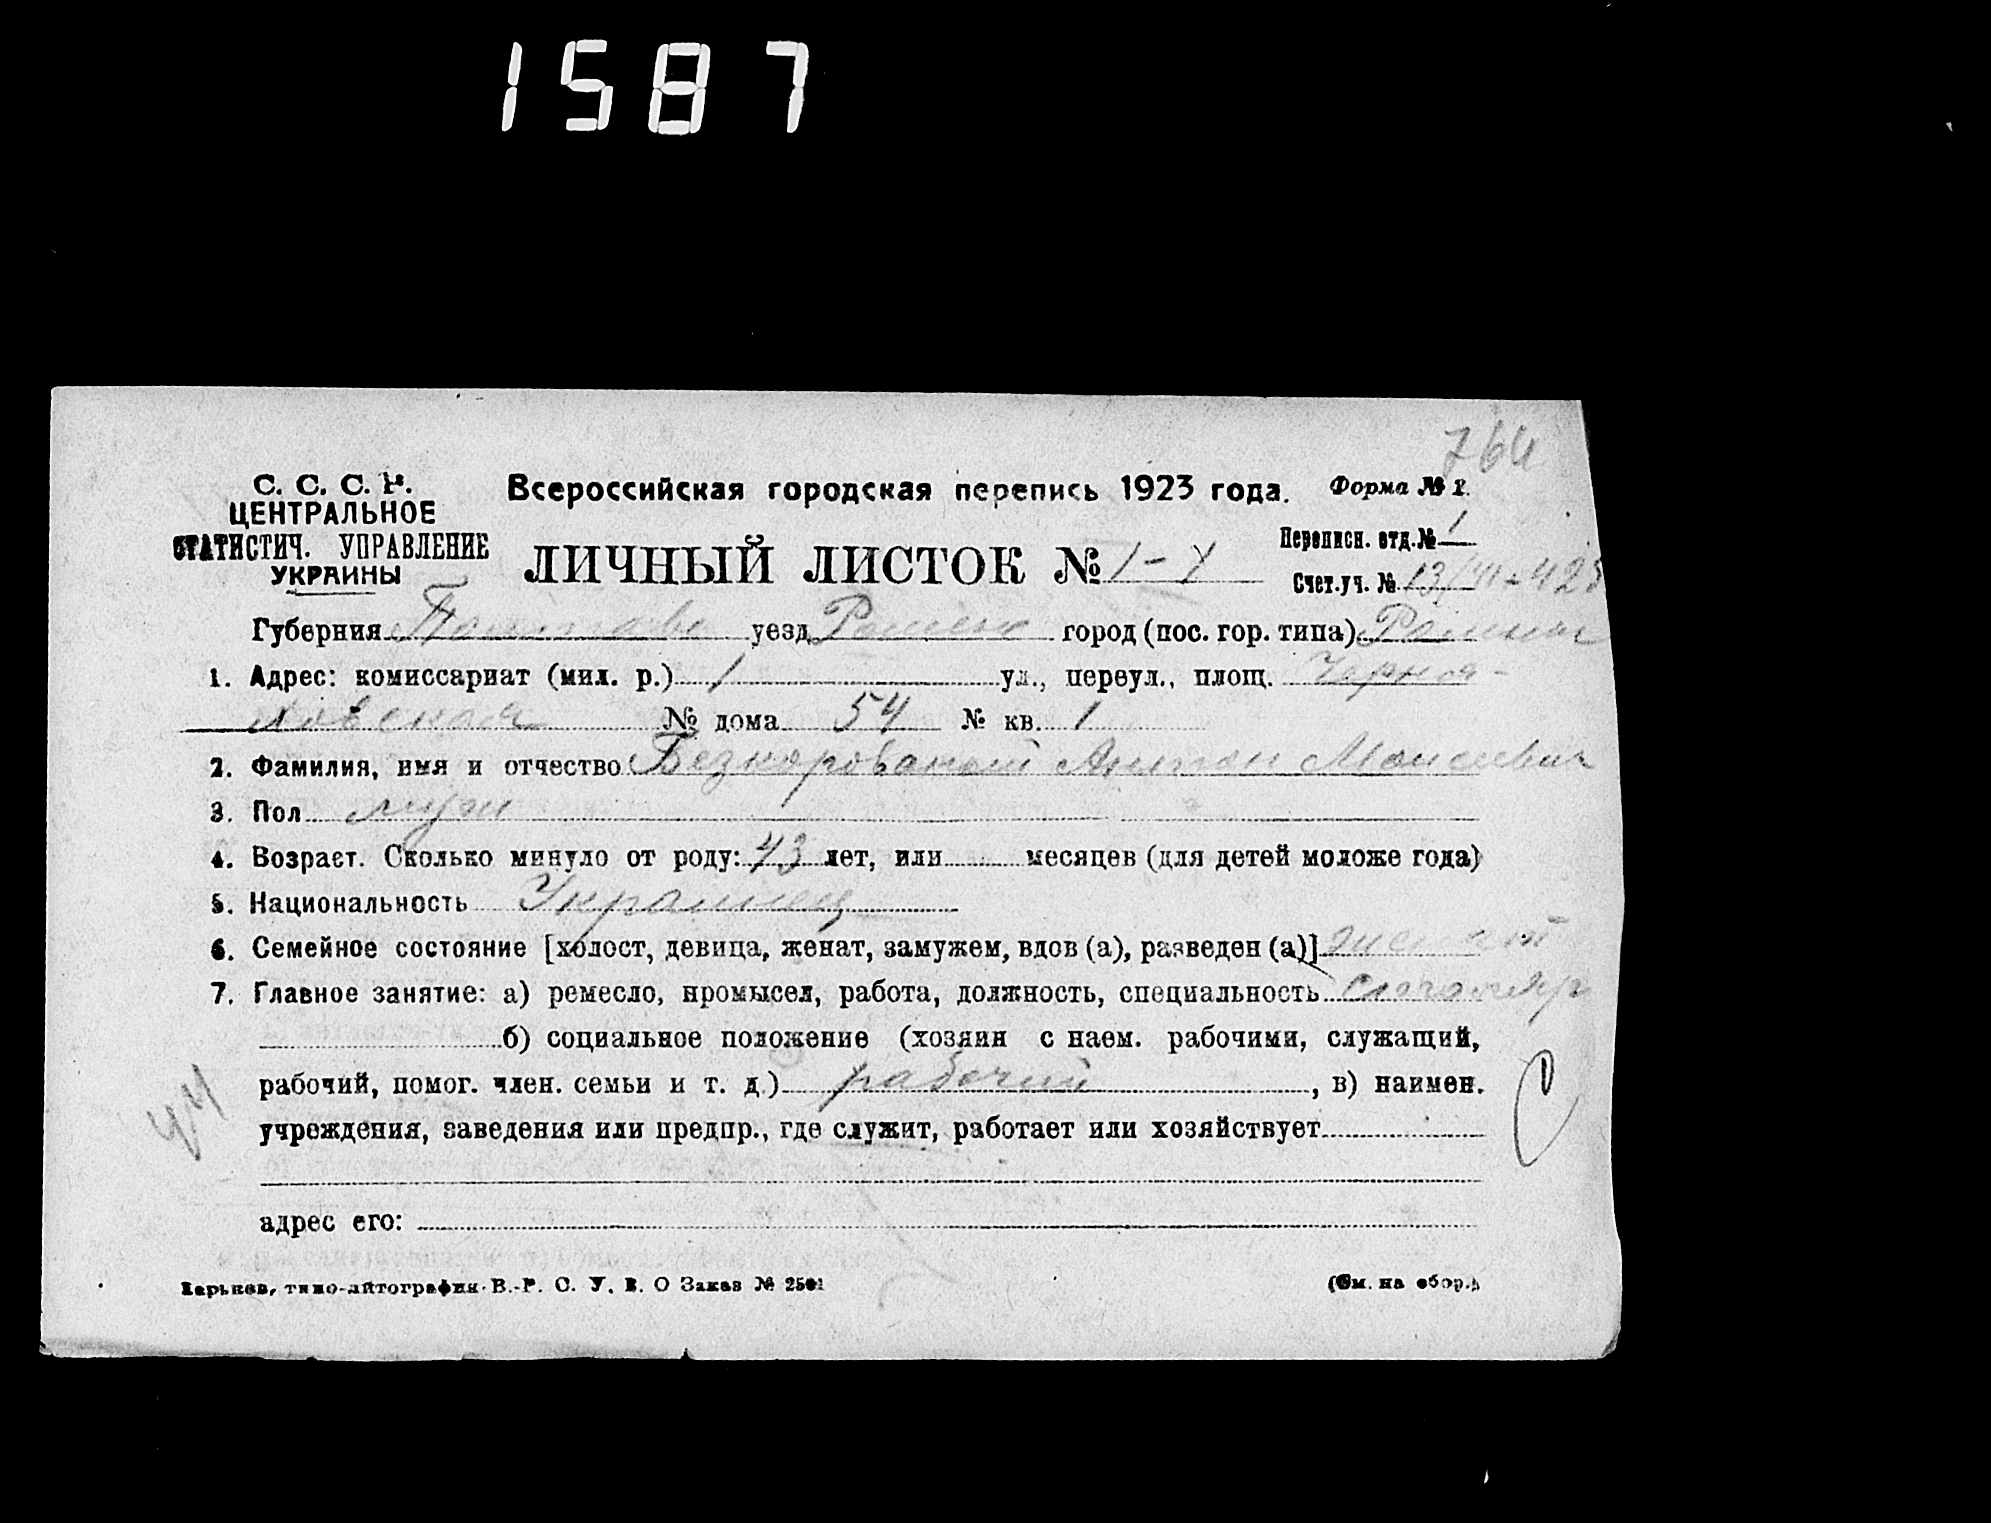 1587
764
С. С. С. Р.
ЦЕНТРАЛЬНОЕ
СТАТИСТИЧ. УПРАВЛЕНИЕ
УКРАИНЫ
Всероссийская городская перепись 1923 года.
Форма № 1.
ЛИЧНЫЙ ЛИСТОК № 1-
Переписн. отд. № 1
Счет.уч. № 13/
Губерния Полтава уезд Ромен город (пос. гор. типа) Ромны
1. Адрес: комиссариат (мил. р.) 1 ул., переул., площ. Черня-
ховская № дома 54 № кв. 1
2. Фамилия, имя и отчество Безкоровайный Антон Моисеевич
3. Пол муж
4. Возраст. Сколько минуло от роду: 43 лет, или месяцев (для детей моложе года)
5. Национальность Украинец
6. Семейное состояние [холост, девица, женат, замужем, вдов (а), разведен (а)] женат
7. Главное занятие: а) ремесло, промысел, работа, должность, специальность
б) социальное положение (хозяин с наем. рабочими, служащий,
рабочий, помог. член. семьи и т. д.) рабочий , в) наимен.
учреждения, заведения или предпр., где служит, работает или хозяйствует
адрес его:
Харьков, типо-литография В.-Р. С. У. В. О Заказ № 2501
(См. на обор.)